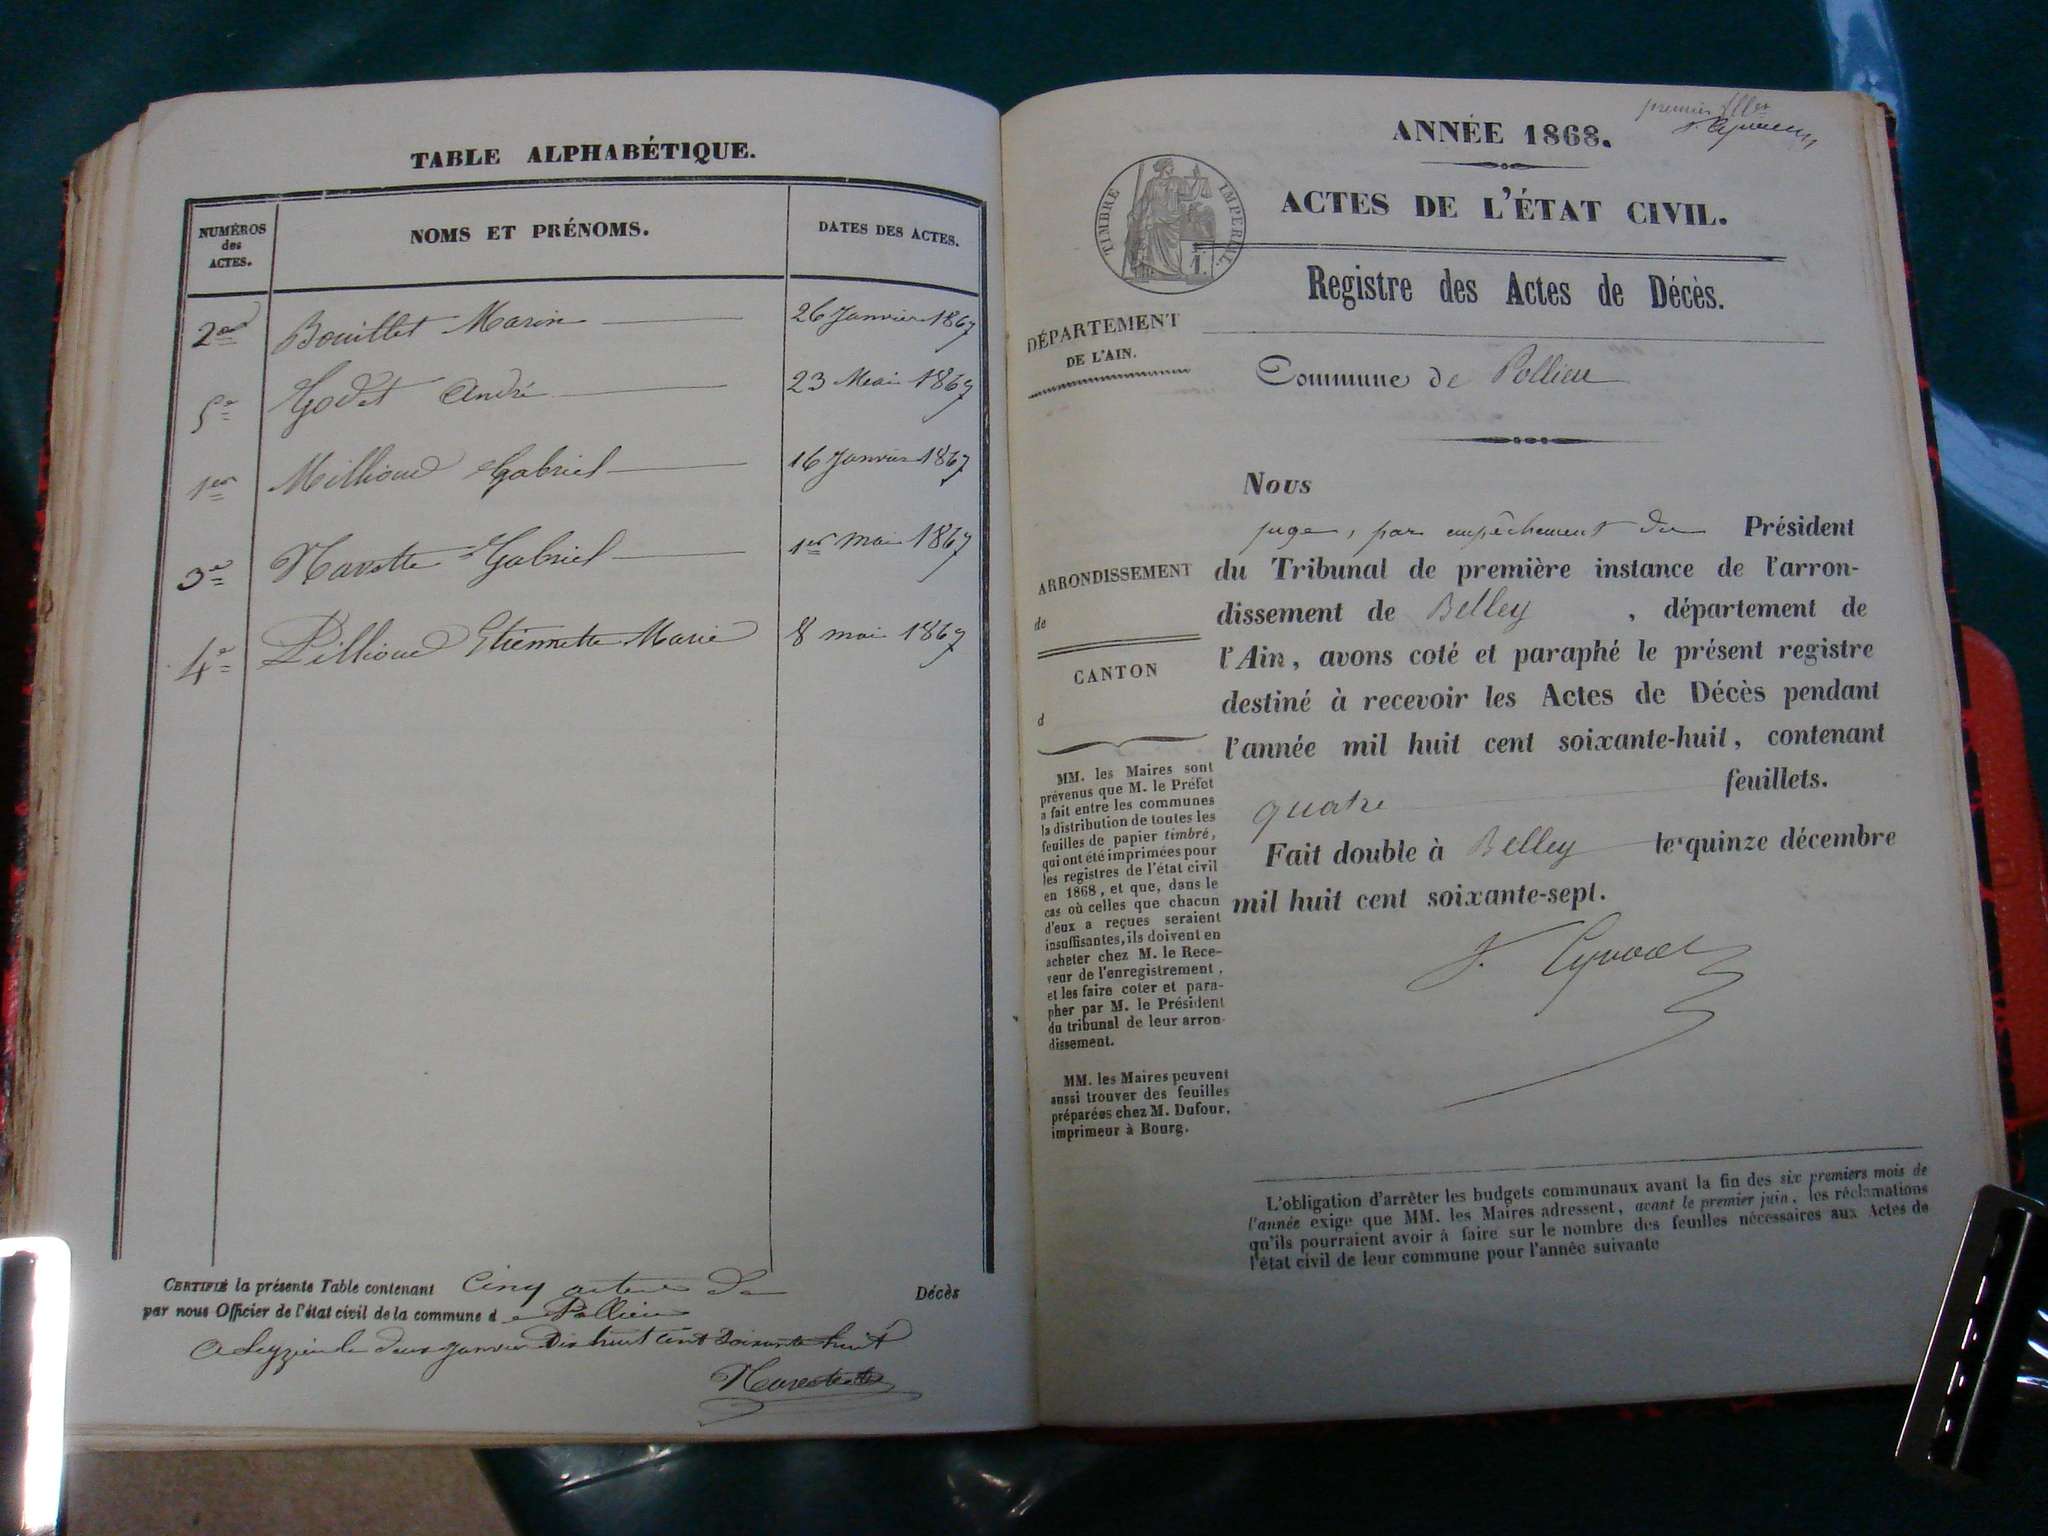 TABLE ALPHABÉTIQUE.
NUMÉROS des ACTES.
NOMS ET PRÉNOMS.
DATES DES ACTES.
Bouillet Marin 26 Janvier 1867
5e Godet André 23 Mai 1867
1er Millioud Gabriel 16 Janvier 1867
3e Navette Gabriel 1er mai 1867
4e Pillioud Etiennette Marie 8 mai 1867
CERTIFIÉ la présente Table contenant Cinq actes de Décès
par nous Officier de l'état civil de la commune de Pollieu
deux janvier Dix huit cent Soixante huit
premier
ANNÉE 1868.
ACTES DE L'ÉTAT CIVIL.
TIMBRE IMPÉRIAL.
1.
Registre des Actes de Décès.
DÉPARTEMENT
DE L'AIN.
Commune de Pollieu
Nous
juge, par empêchement du Président
du Tribunal de première instance de l'arron-
dissement de Belley , département de
l'Ain, avons coté et paraphé le présent registre
destiné à recevoir les Actes de Décès pendant
l'année mil huit cent soixante-huit, contenant
quatre feuillets.
Fait double à Belley le quinze décembre
mil huit cent soixante-sept.
ARRONDISSEMENT
de
CANTON
d
MM. les Maires sont
prévenus que M. le Préfet
a fait entre les communes
la distribution de toutes les
feuilles de papier timbré,
qui ont été imprimées pour
les registres de l'état civil
en 1868, et que, dans le
cas où celles que chacun
d'eux a reçues seraient
insuffisantes, ils doivent en
acheter chez M. le Rece-
veur de l'enregistrement,
et les faire coter et para-
pher par M. le Président
du tribunal de leur arron-
dissement.
MM. les Maires peuvent
aussi trouver des feuilles
préparées chez M. Dufour,
imprimeur à Bourg.
L'obligation d'arrêter les budgets communaux avant la fin des six premiers mois de
l'année exige que MM. les Maires adressent, avant le premier juin, les réclamations
qu'ils pourraient avoir à faire sur le nombre des feuilles nécessaires aux Actes de
l'état civil de leur commune pour l'année suivante